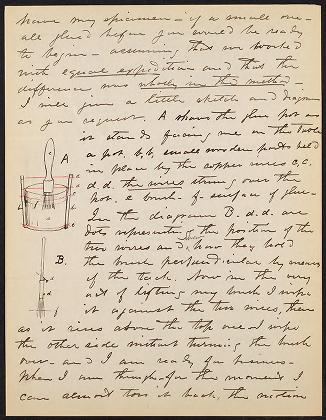 have my specimen - if a small one -
all glued before you would be ready
to begin - assuming that we worked
with equal expedition and that the
difference was wholly in the method -
I will give a little sketch and diagram
as you request. A shows the glue pot as
it stands facing me on the table
a pot. b,b, small wooden posts held
in place by the copper wires c,c.
d.d. the wires strung over the
pot. e brush - f - surface of glue -
In the diagram B. d.d. are
dots representing the position of the
two wires and how they hold
the brush perpendicular by means
of the tack. Now in the very
act of lifting my brush I wipe
it against the two wires, then
as it rises above the top one I wipe
the other side without turning the brush
over - and I am ready for business -
When I am through - for the moment I
can almost toss it back, the motion
A
B.